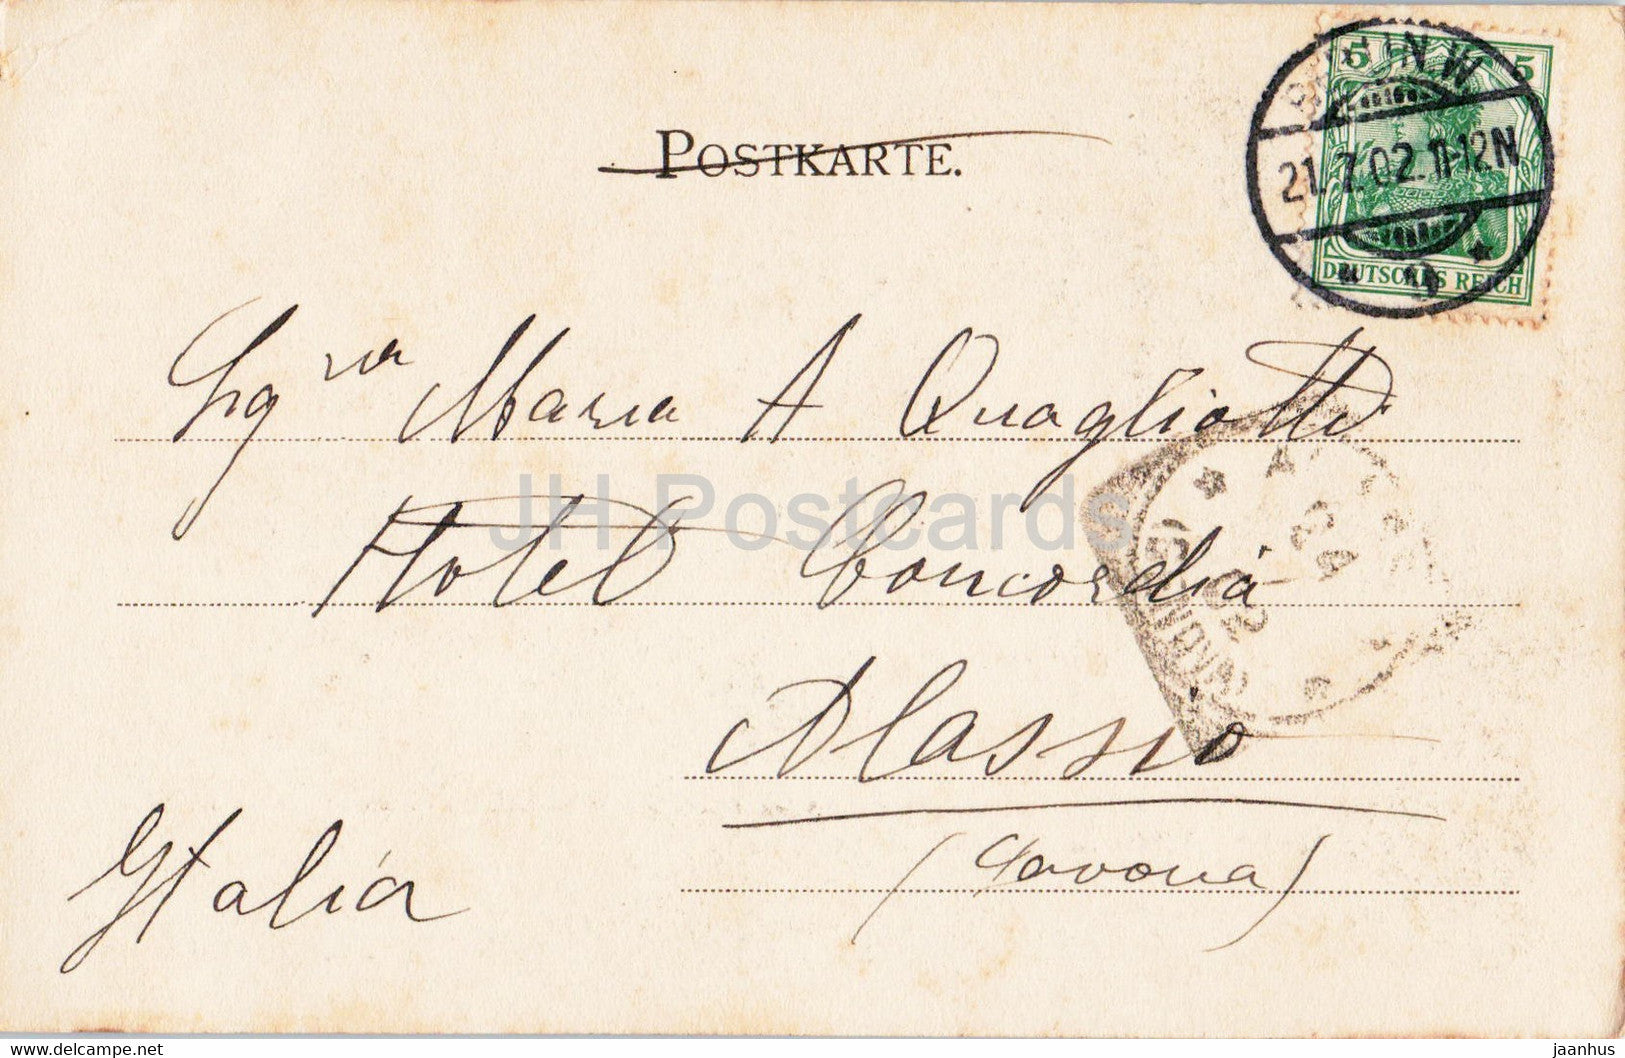 POSTKARTE.
5 5
BERLIN N.W.
21.7.02.11-12N
DEUTSCHES REICH
Sigra Maria A Quagliotti
Hotel Concordia
Alassio
(Savona)
Italia
(GENOVA)
02
JH Postcards
www.delcampe.net
jaanhus